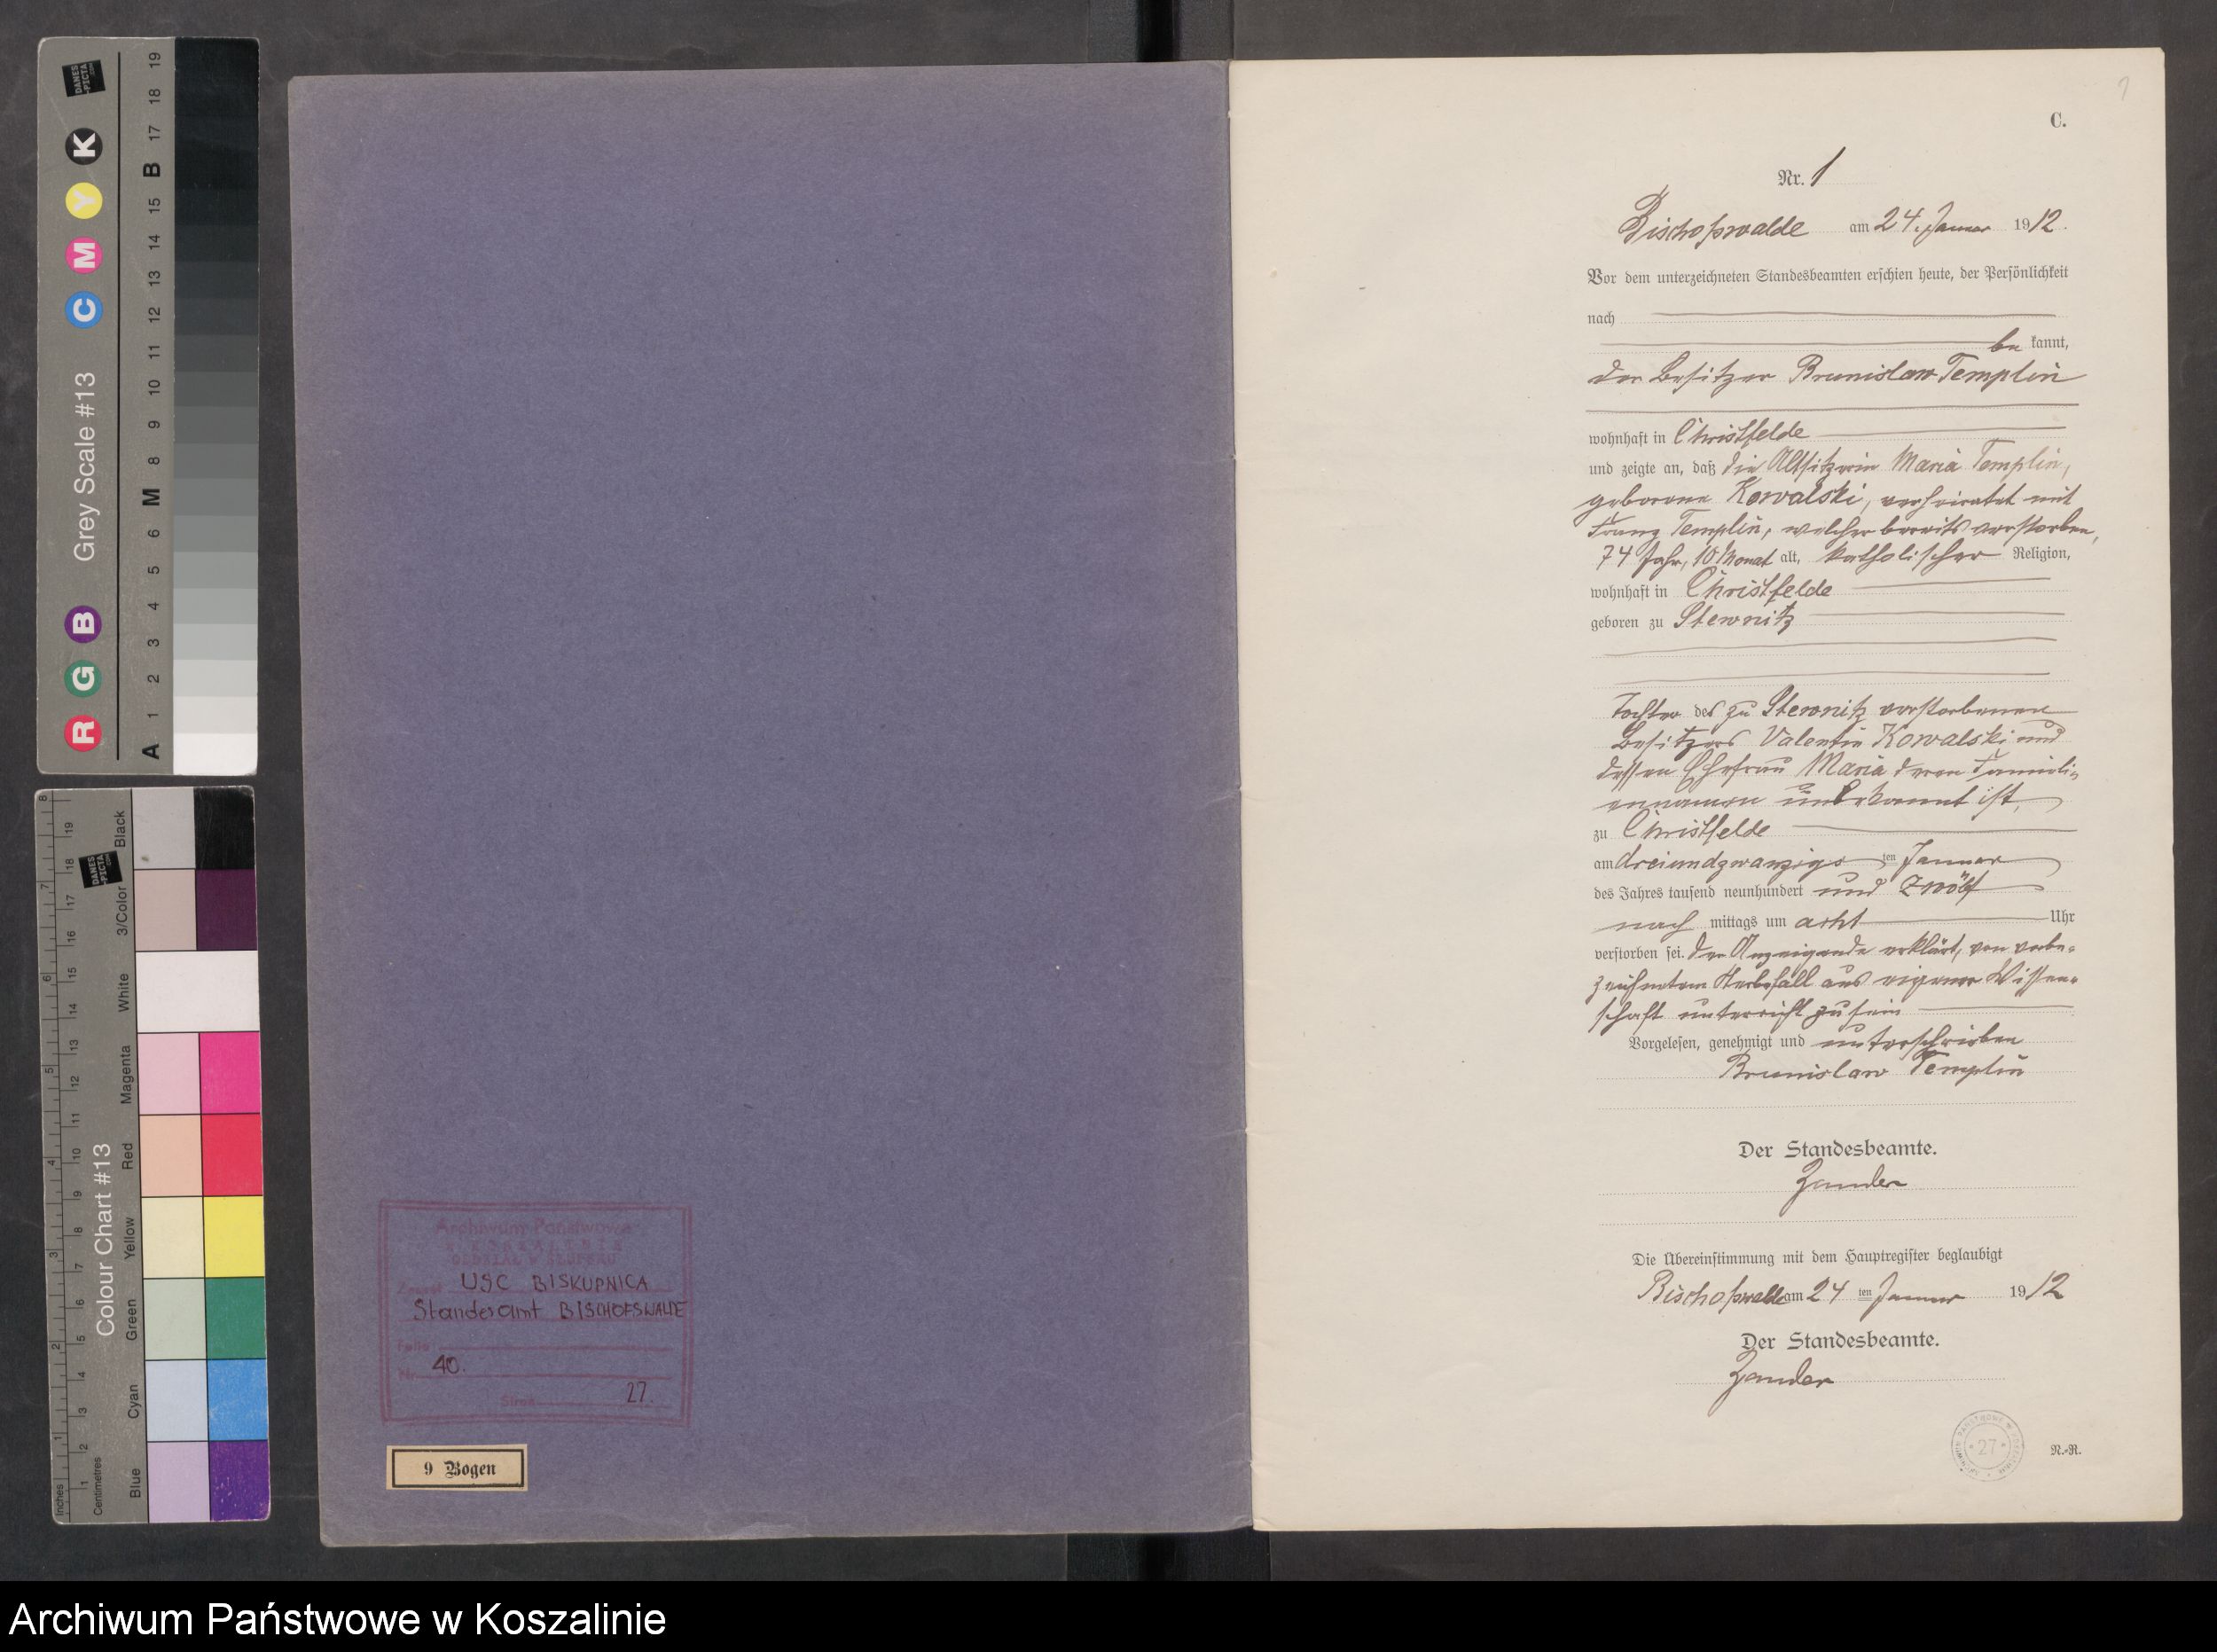 DANES
-PICTA
.COM
R G B Grey Scale #13 C M Y K
A 1 2 3 4 5 6 M 8 9 10 11 12 13 14 15 B 17 18 19
Inches 1 2 3 4 5 6 7 8
Centimetres 1 2 3 4 5 6 7 8 9 10 11 12 13 14 15 16 17 18 19
DANES
-PICTA
.COM
Colour Chart #13
Blue Cyan Green Yellow Red Magenta White 3/Color Black
Archiwum Państwowe
USC BISKUPNICA
Standesamt BISCHOFSWALDE
Nr. 40.
Stron 27.
9 Bogen
C.
Nr. 1
Bischofswalde am 24. Januar 1912.
Vor dem unterzeichneten Standesbeamten erschien heute, der Persönlichkeit
nach
be kannt,
der Besitzer Brunislaw Templin
wohnhaft in Christfelde
und zeigte an, daß die Altsitzerin Maria Templin,
geborene Kowalski, verheiratet mit
Franz Templin, welcher bereits verstorben,
74 Jahr, 10 Monat alt, katholischer Religion,
wohnhaft in Christfelde
geboren zu Stewnitz
Tochter des zu Stewnitz verstorbenen
Besitzers Valentin Kowalski und
dessen Ehefrau Maria deren Famili-
ennamen unbekannt ist,
zu Christfelde
am dreiundzwanzigs ten Januar
des Jahres tausend neunhundert und zwölf
nach mittags um acht Uhr
verstorben sei. Der Anzeigende erklärt, von vorbe-
zeichnetem Sterbefall aus eigener Wissen-
schaft unterricht zu sein
Vorgelesen, genehmigt und unterschrieben
Brunislaw Templin
Der Standesbeamte.
Zander
Die Übereinstimmung mit dem Hauptregister beglaubigt
Bischofswalde am 24 ten Januar 1912
Der Standesbeamte.
Zander
27
N.-R.
Archiwum Państwowe w Koszalinie